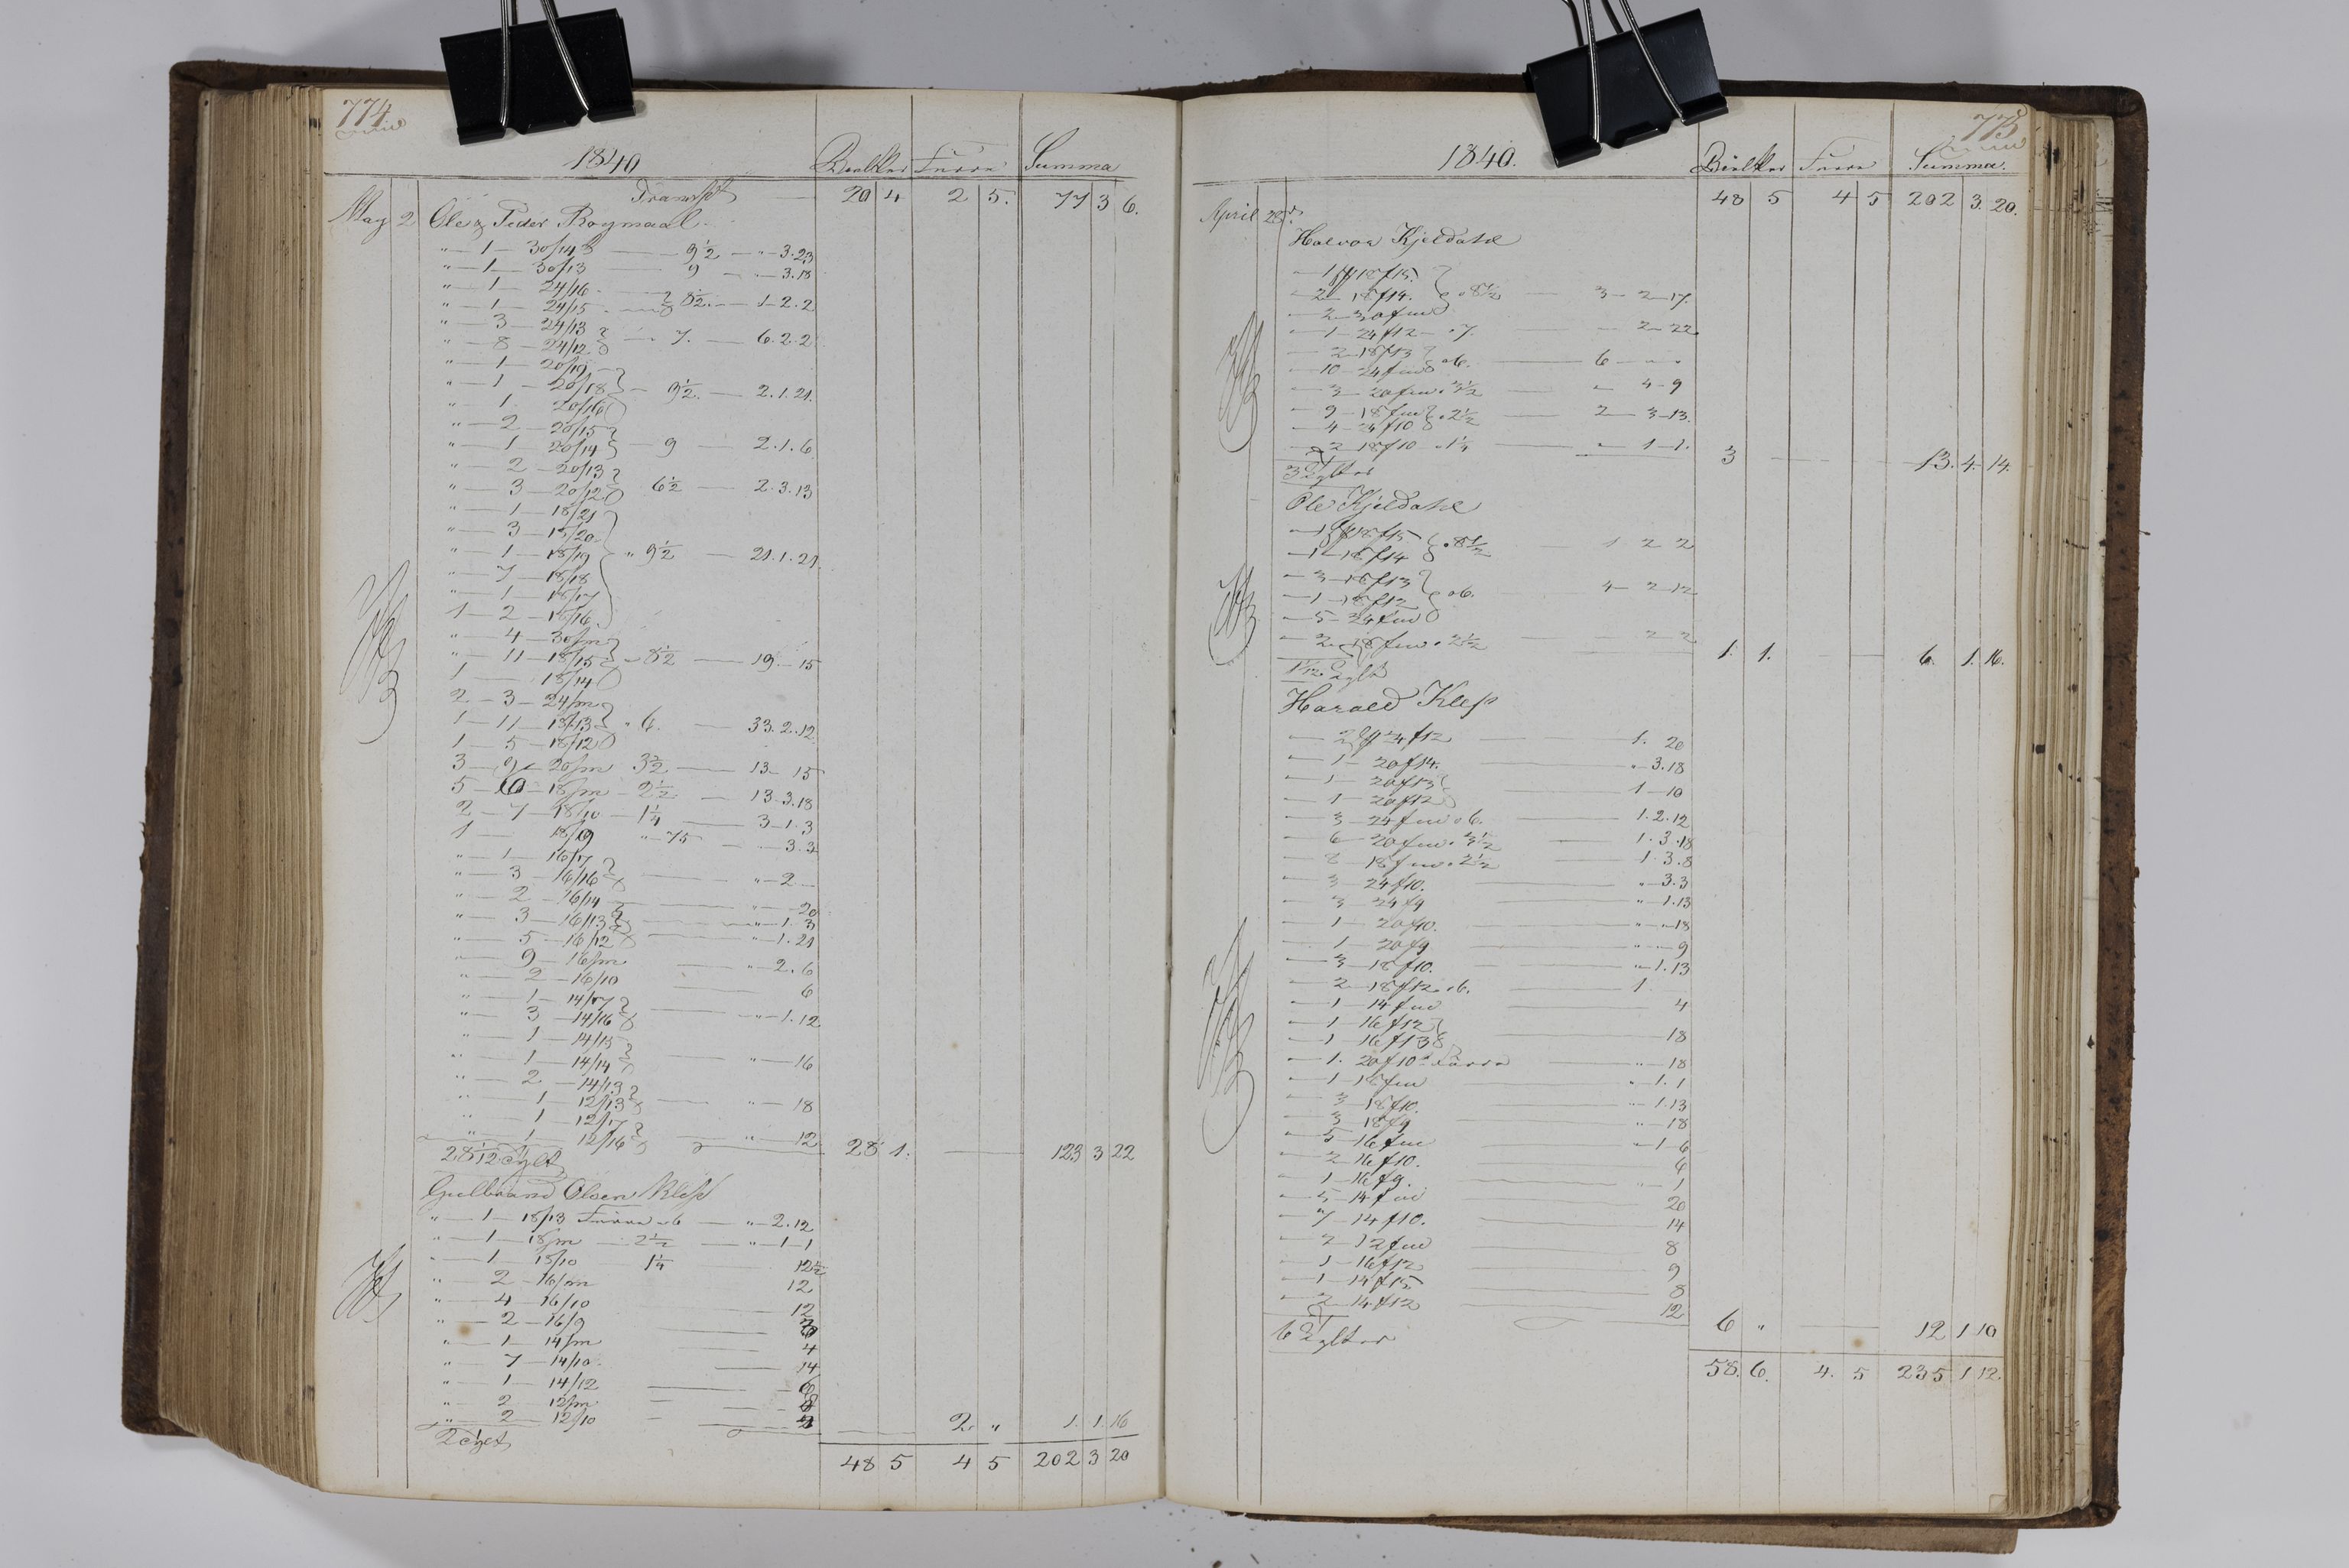 774
1840 Bielker Furre Summa
Transpt 20 4 2 5. 77 3 6.
May 2 Ole & Peder Rogmaal.
" 1 30/14 9½ " 3.23
" 1 30/13 9 3.18
" 1 24/16
" 1 24/15 8½ 1-2.2
" 3 24/13
" 8 24/12 7. 6.2.2
" 1 20/19
" 1 20/18 9½ 2.1.21.
" 1 20/16
" 2 20/15
" 1 20/14 9 2.1.6
" 2 20/13
" 3 20/12 6½ 2.3.13
" 1 18/21
" 3 18/20
" 1 18/19 " 9½ 21.1.21.
" 7 18/18
" 1 18/17
1 2 18/16
" 4 30/m
" 11 18/15 8½ 19. 15
1 18/14
2 3 24/m
1 11 18/13 " 6. 33.2.12.
1 5 18/12
3 9 20/m 3½ 13 15
5 10 18/m 2½ 13.3.18
2 7 18/10 1¼ 3-1.3
1 18/9 " 75 3.3
" 1 16/17
" 3 16/16 " 2
" 2 16/14 20
" 3 16/13 " 1.3
" 5 16/12 " 1.21
" 9 16/m " 2.6
" 2 16/10 6
" 1 14/17
" 3 14/16 " 1.12
" 1 14/15
" 1 14/14 " 16
" 2 14/13
" 1 12/13 " 18
" 1 12/17
" 1 12/16 " 12 28 1. 123 3 22
28 1/12 Tylt
Gulbrand Olsen Klep
" 1 18/13 Furre 6 " 2.12
" 1 18/m 2½ " 1-1
" 1 18/10 1¼ 12½
" 2 16/m 12
" 4 16/10 12
" 2 16/9
" 1 14/m 4
" 7 14/10. 14
" 1 14/12 6
" 2 12/m 8
" 2 12/10 2. " 1. 1. 16
2 Tylt
48 5 4 5 202 3 20
775
1840. Bielker Furre Summa.
48 5 4 5 202 3. 20.
April 28
Halvor Kjeldahl
1 18 f 15
2 18 f 14. 8½ 3 2 17.
2 30 fm
1 24 f 12 7. 2 22
2 18 f 13
10 24 fm 6. 6 - -
3 20 fm 3½ 4-9
9 18 fm 2½ 2 3-13.
4 24 f 10
2 18 f 10 1¼ 1-1. 3 13. 4- 14.
3 Tylter
Ole Kjeldahl
1 18 f 15
1 18 f 14 8½ 1 2 2
3 18 f 13
1 18 f 12 6. 4 2-12
5 24 fm
2 18 fm 2½ 2 2 1. 1. 6. 1. 16.
1 1/12 Tylt
Harald Klep
2 24 f 12 1. 20
1 20 f 14. " 3.18
1 20 f 13
1 20 f 12 1-10
3 24 fm 6. 1.2.12
6 20 fm 3½ 1.3.18
8 18 fm 2½ 1.3.8
3 24 f 10. " 3.3
3 24 f 9 " 1.13
1 20 f 10. " 18
1 20 f 9 " 9
3 18 f 10. " 1.13
2 18 f 12 6. 1
1 14 fm 4
1 16 f 12
1 16 f 13 18
1. 20 f 10 " 18
1 18 fm " 1.1
3 18 f 10. " 1.13
3 18 f 9 " 18
5 16 fm " 1 6
2 16 f 10. 6
1 16 f 9. " 1
5 14 fm 20
7 14 f 10. 14
2 12 fm 8
1 16 f 12 9
1 14 f 15 8
2 14 f 12 12 6 " 12 1 10
6 Tylter
58. 6. 4. 5 235 1 12.